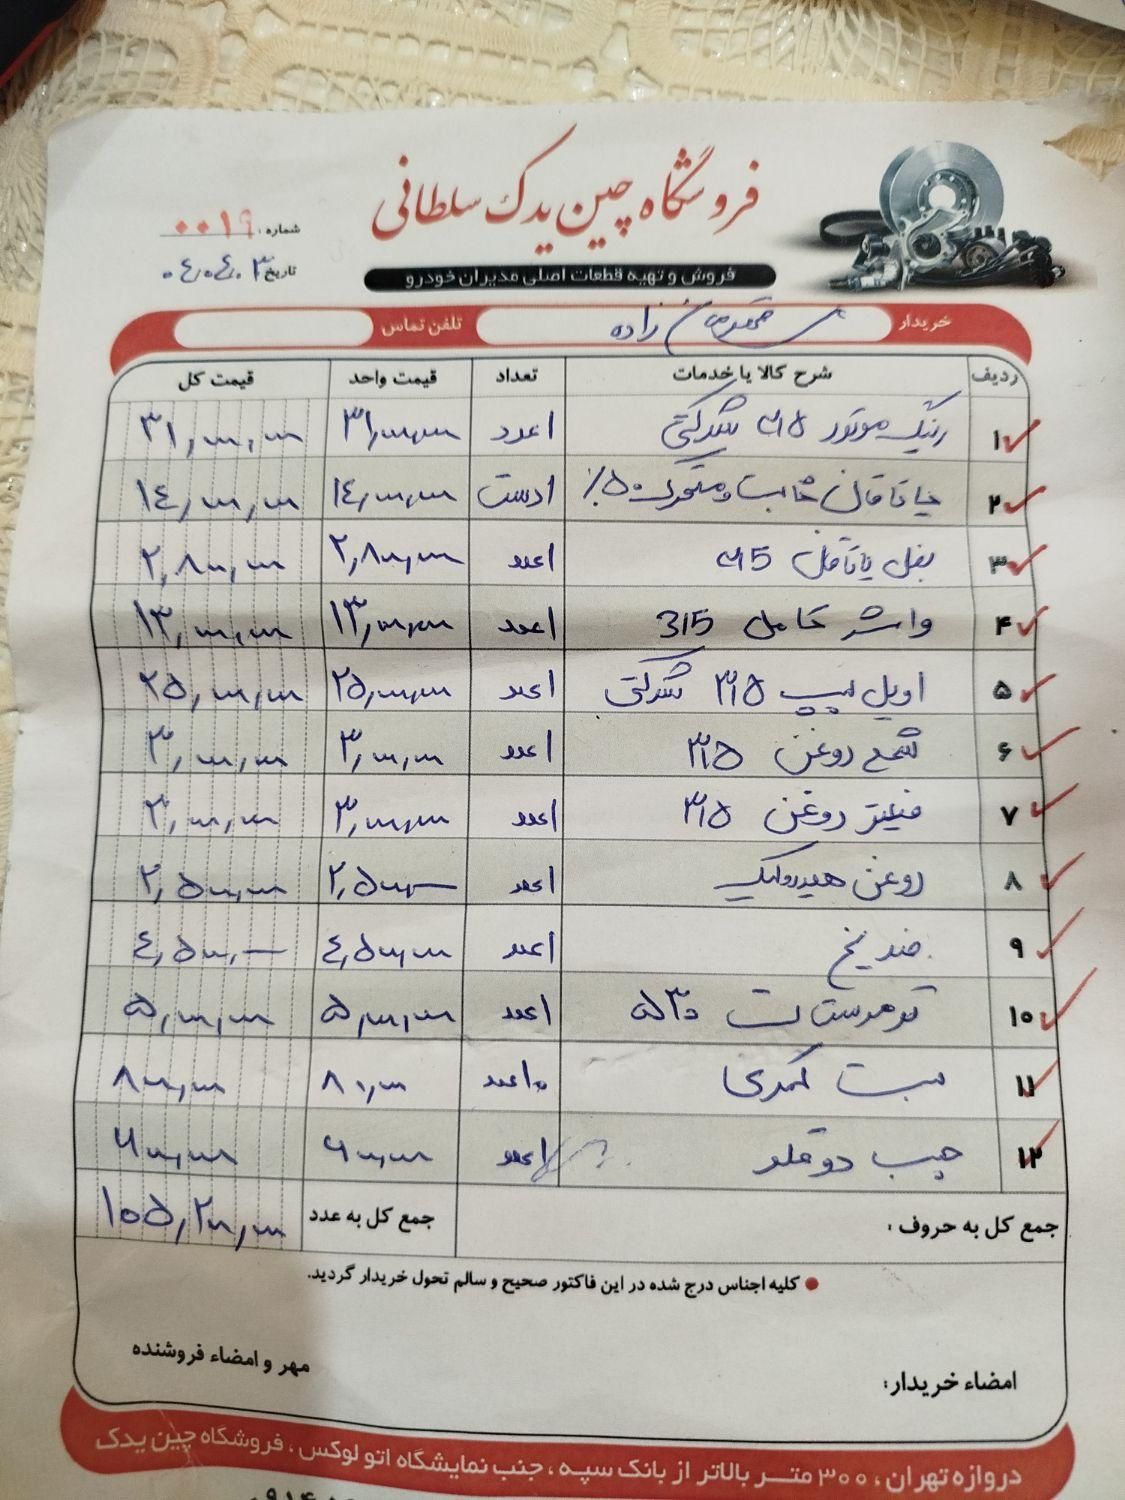 فروشگاه چین یدک سلطانی
فروش و تهیه قطعات اصلی مدیران خودرو
شماره: ۰۰۱۹
تاریخ ۰٤,۰٤,۰۳
خریدار زاده تلفن تماس
ردیف شرح کالا یا خدمات تعداد قیمت واحد قیمت کل
۱ رینگ موتور ۳۱۵ شرکتی ۱عدد ۳۱,۰۰۰,۰۰۰ ۳۱,۰۰۰,۰۰۰
۲ یاتاقان ثابت و متحرک ۵۰٪ ۱دست ۱٤,۰۰۰,۰۰۰ ۱٤,۰۰۰,۰۰۰
۳ بغل یاتاقان ۳۱۵ ۱عدد ۲,۸۰۰,۰۰۰ ۲,۸۰۰,۰۰۰
۴ واشر کامل 315 ۱عدد ۱۳,۰۰۰,۰۰۰ ۱۳,۰۰۰,۰۰۰
۵ اویل پمپ ۳۱۵ شرکتی ۱عدد ۲۵,۰۰۰,۰۰۰ ۲۵,۰۰۰,۰۰۰
۶ شمع روغن ۳۱۵ ۱عدد ۳,۰۰۰,۰۰۰ ۳,۰۰۰,۰۰۰
۷ فیلتر روغن ۳۱۵ ۱عدد ۳,۰۰۰,۰۰۰ ۳,۰۰۰,۰۰۰
۸ روغن هیدرولیک ۱عدد ۲,۵۰۰,— ۲,۵۰۰,۰۰۰
۹ ضد یخ ۱عدد ٤,۵۰۰,۰۰۰ ٤,۵۰۰,—
۱۰ ترموستات ۵۳۰ ۱عدد ۵,۰۰۰,۰۰۰ ۵,۰۰۰,۰۰۰
۱۱ بست کمری ۱۰عدد ۸۰,۰۰۰ ۸۰۰,۰۰۰
۱۲ چسب دوقلو ۱عدد ۶۰۰,۰۰۰ ۶۰۰,۰۰۰
جمع کل به حروف: جمع کل به عدد ۱۰۵,۲۰۰,۰۰۰
کلیه اجناس درج شده در این فاکتور صحیح و سالم تحول خریدار گردید.
امضاء خریدار: مهر و امضاء فروشنده
دروازه تهران، ۳۰۰ متر بالاتر از بانک سپه، جنب نمایشگاه اتو لوکس، فروشگاه چین یدک